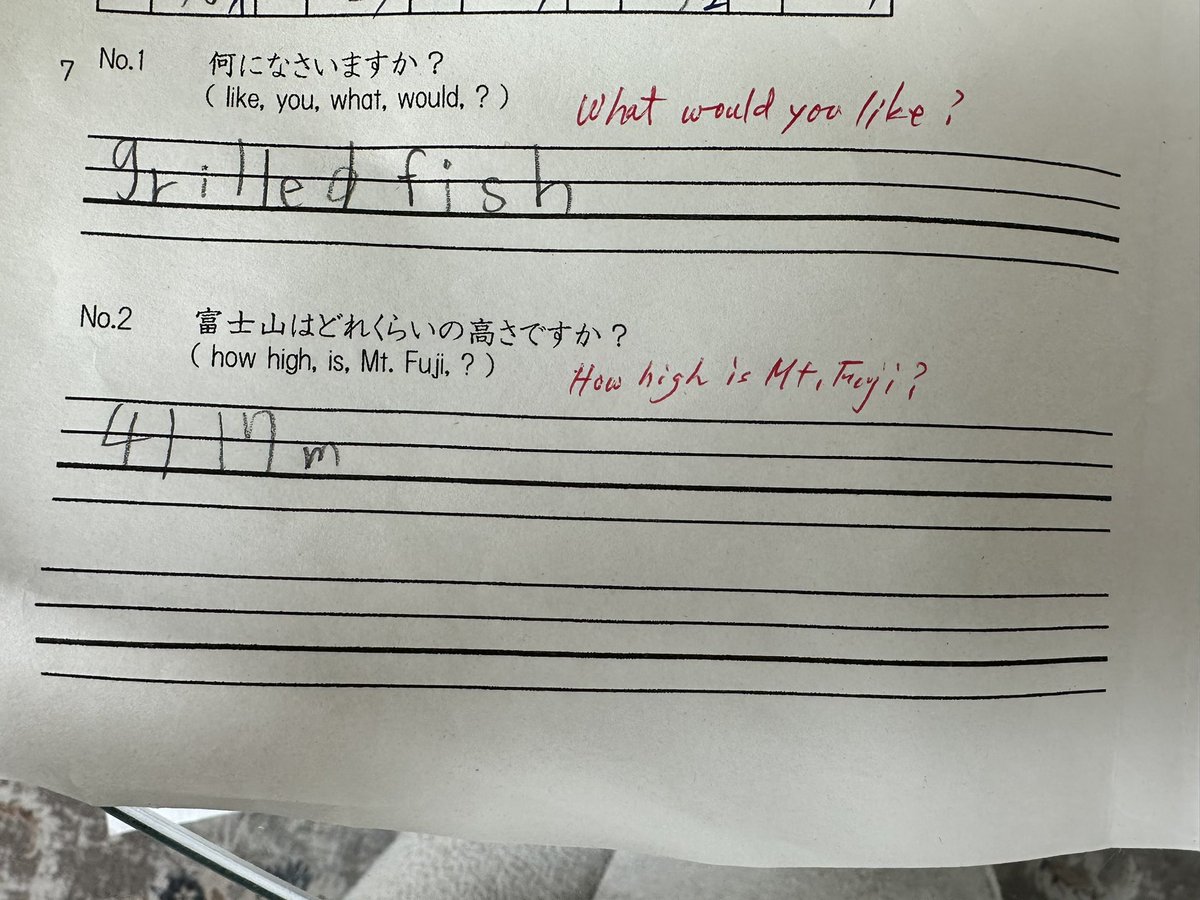 7 No.1 何になさいますか？
( like, you, what, would, ? ) What would you like?
grilled fish
No.2 富士山はどれくらいの高さですか？
( how high, is, Mt. Fuji, ? ) How high is Mt. Fuji?
4117m